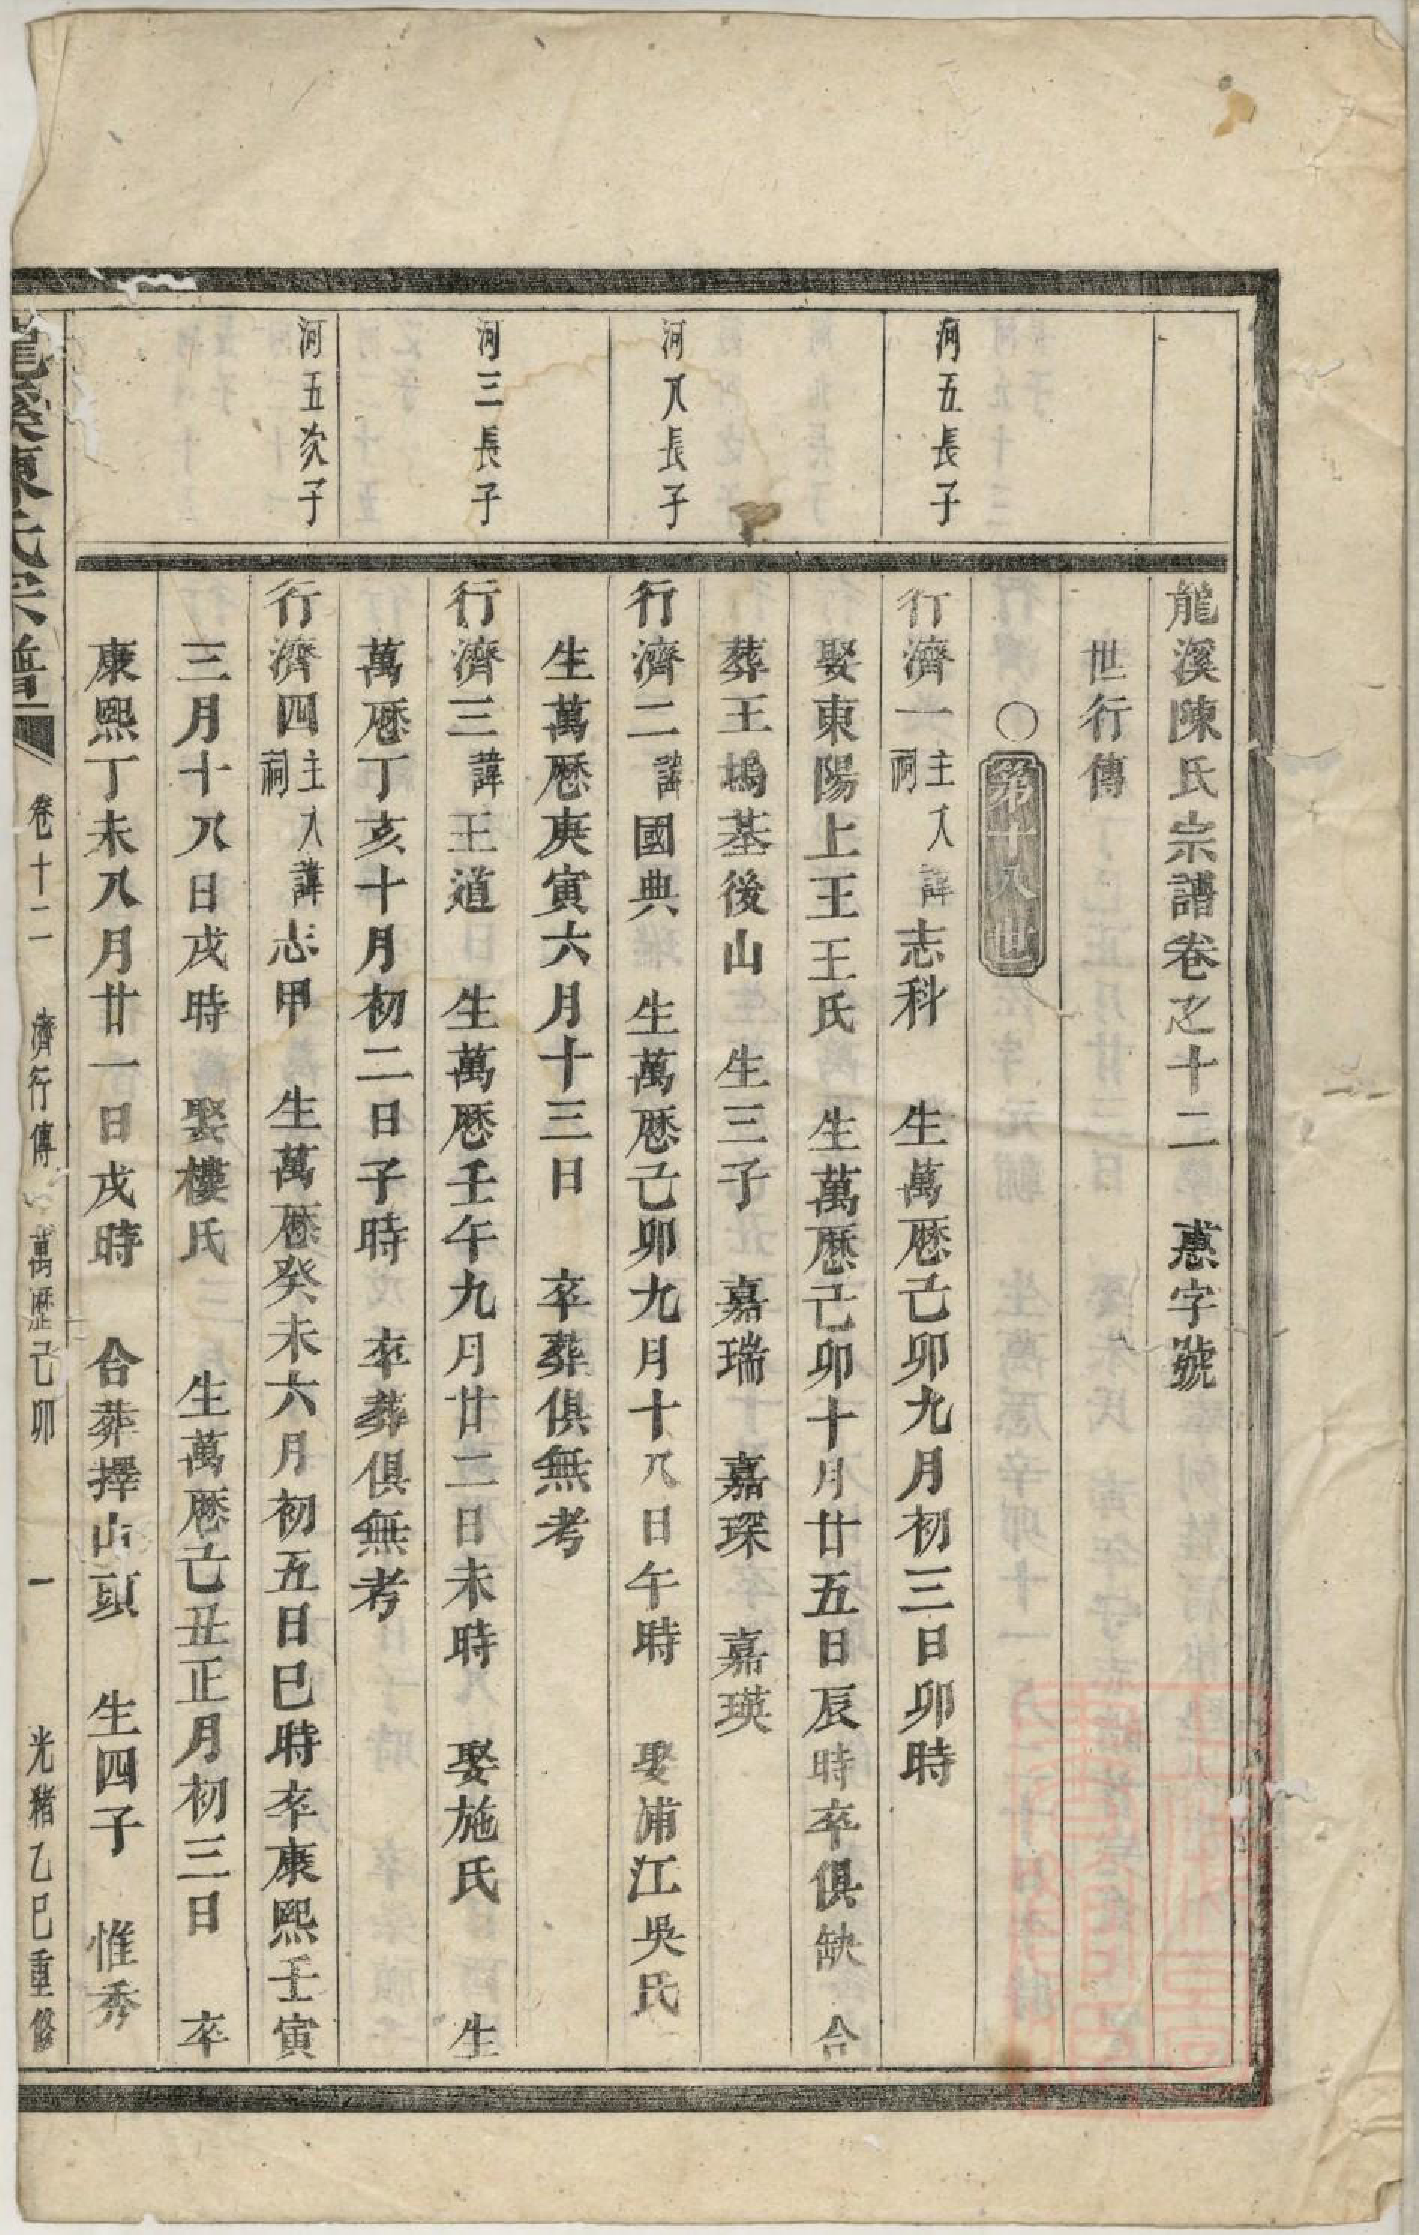 龍溪陳氏宗譜卷之十二　惪字號
世行傳
○第十八世
河五長子
行濟一主入祠諱志科　生萬厯己卯九月初三日卯時
娶東陽上王王氏　生萬厯己卯十月廿五日辰時卒俱缺　合
葬王塢基後山　生三子　嘉瑞　嘉琛　嘉瑛
河八長子
行濟二諱國典　生萬厯己卯九月十八日午時　娶浦江吳氏
生萬厯庚寅六月十三日　卒葬俱無考
河三長子
行濟三諱王道　生萬厯壬午九月廿二日未時　娶施氏　生
萬厯丁亥十月初二日子時　卒葬俱無考
河五次子
行濟四主入祠諱志甲　生萬厯癸未六月初五日巳時卒康熙壬寅
三月十八日戌時　娶樓氏　生萬厯己丑正月初三日　卒
康熙丁未八月廿一日戌時　合葬擇山頭　生四子　惟秀
龍溪陳氏宗譜　卷十二　濟行傳　萬歷己卯　一　光緒乙巳重修